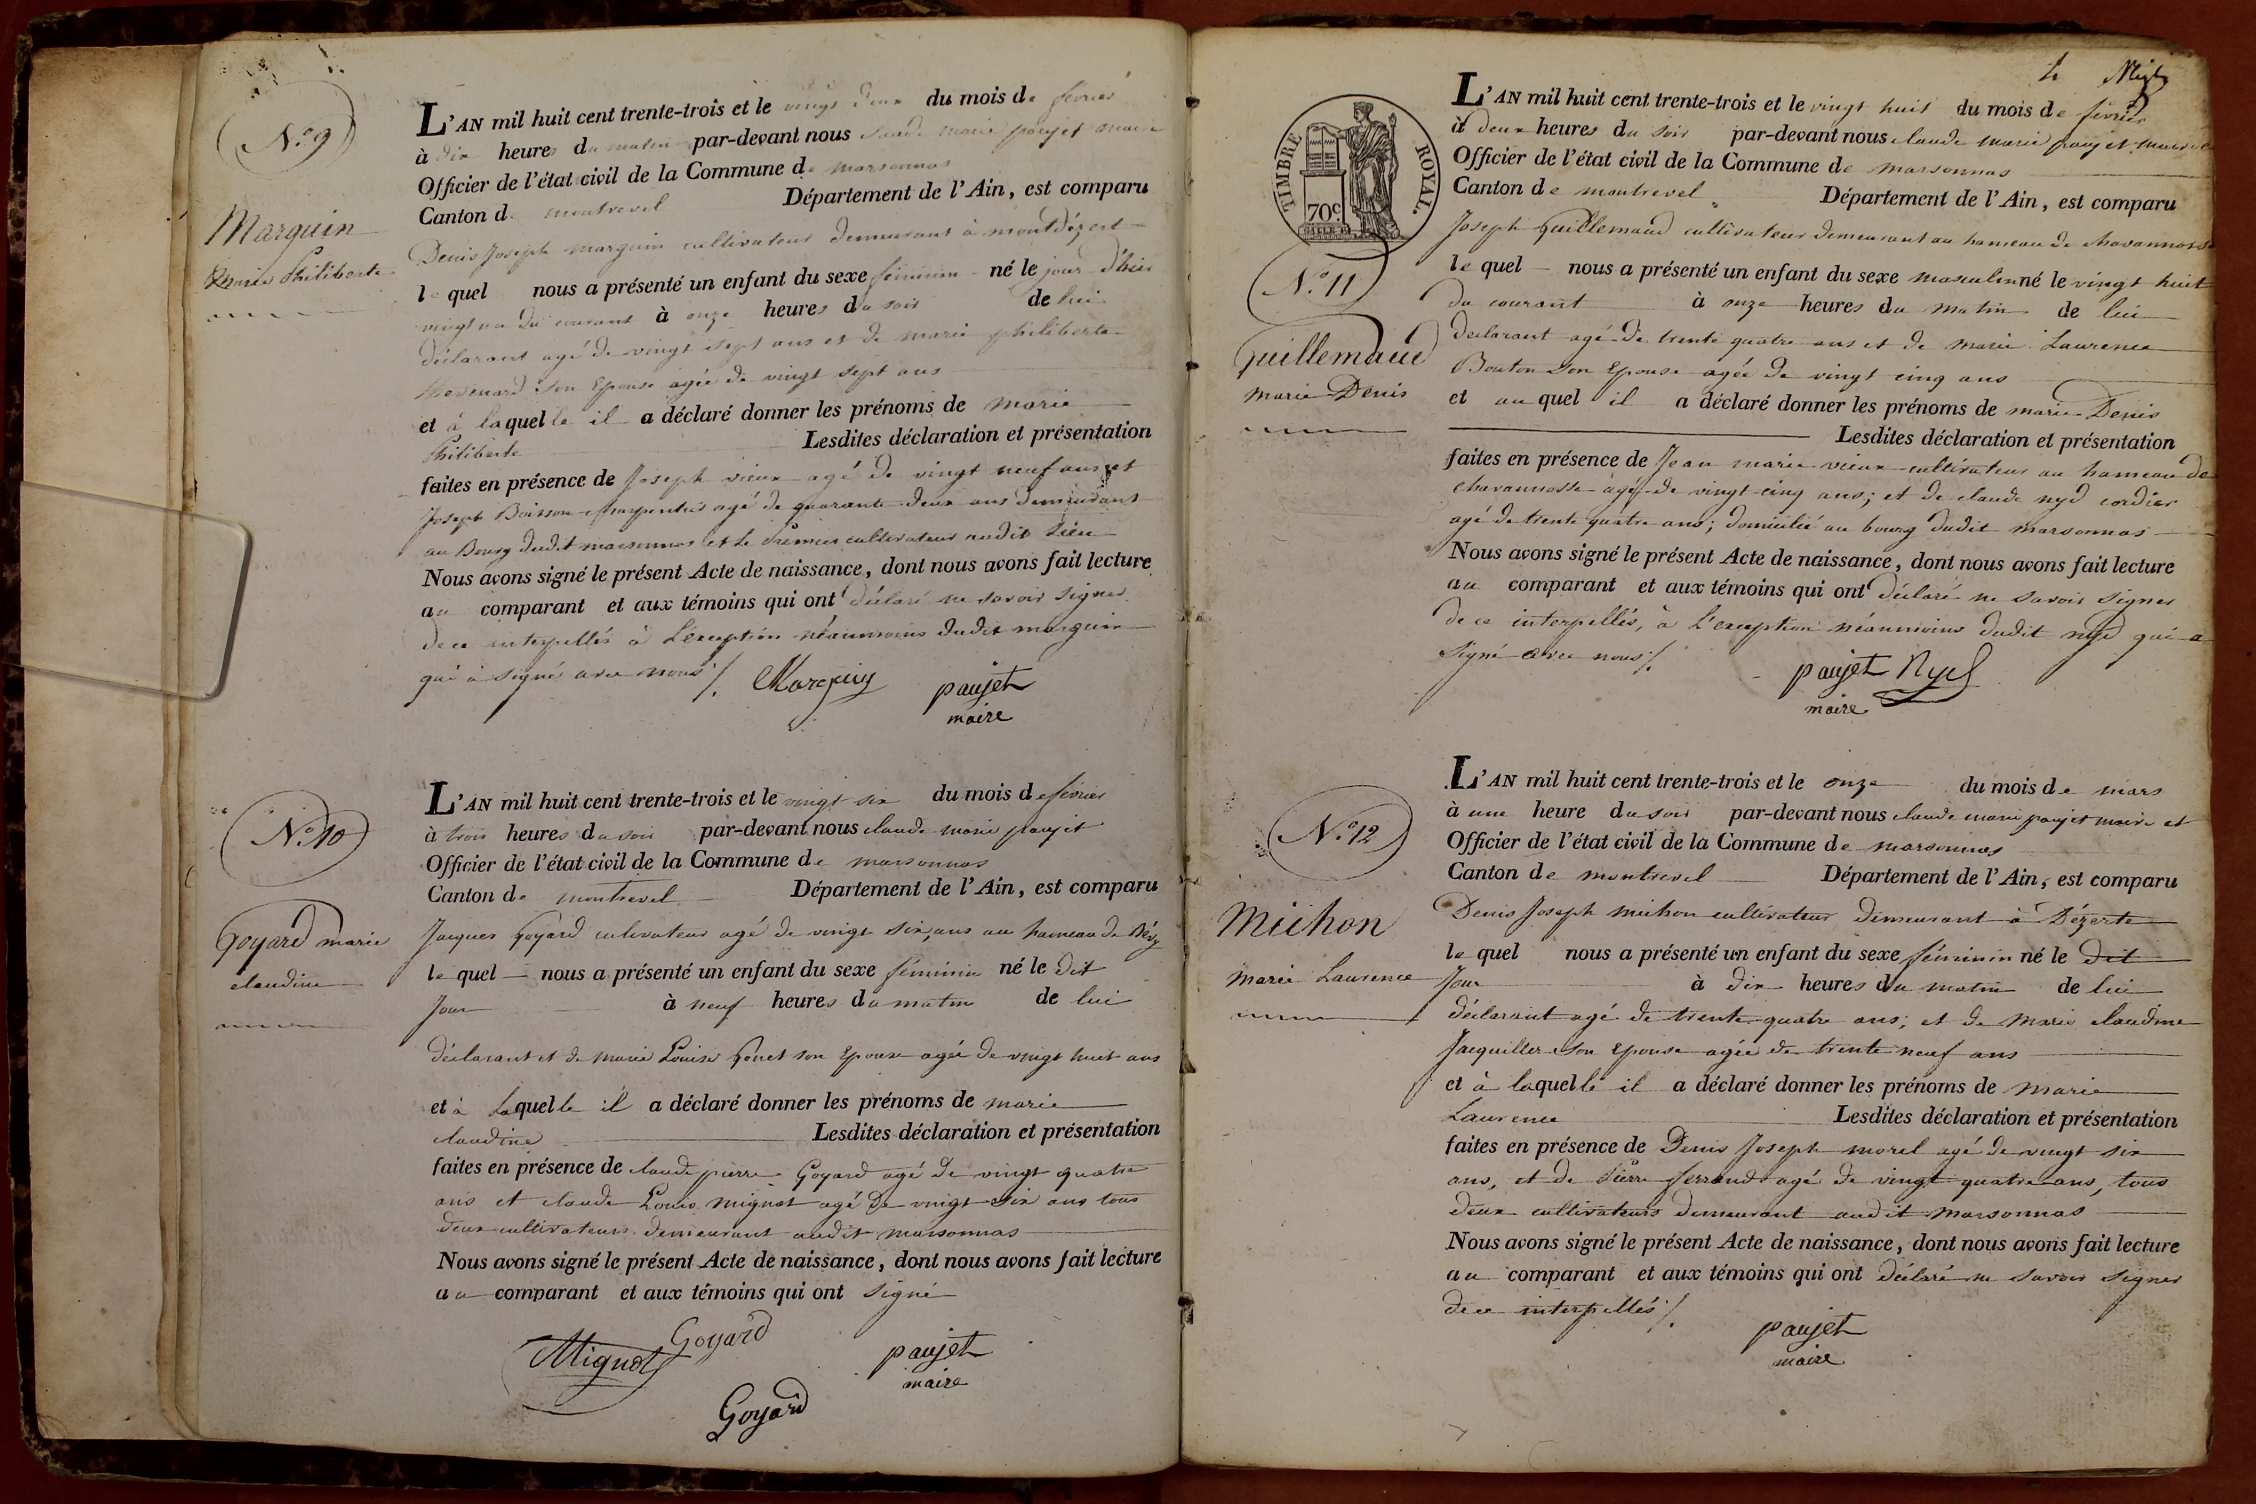 N.º 9
Marguin
Marie Philiberte
L'AN mil huit cent trente-trois et le vingt deux du mois de février
à dix heures du matin par-devant nous claude marie paujet maire
Officier de l'état civil de la Commune de marsonnas
Canton de montrevel Département de l'Ain, est comparu
Denis Joseph marguin cultivateur demeurant à montdézert
le quel nous a présenté un enfant du sexe féminin né le jour d'hier
vingt un du courant à onze heures du soir de lui
déclarant agé de vingt sept ans et de marie philiberte
thevenard son Epouse agée de vingt sept ans
et à laquelle il a déclaré donner les prénoms de marie
Philiberte Lesdites déclaration et présentation
faites en présence de Joseph vieux agé de vingt neuf ans et
Joseph Boisson charpentier agé de quarante deux ans demeurant
au Bourg dudit marsonnas et le Premier cultivateur audit Lieu
Nous avons signé le présent Acte de naissance, dont nous avons fait lecture
au comparant et aux témoins qui ont déclaré ne savoir signer
de ce interpellés à L'exception néanmoins dudit marguin
qui a signé avec nous ./. Marguin paujet
maire
N.º 10
Goyard marie
claudine
L'AN mil huit cent trente-trois et le vingt six du mois de février
à trois heures du soir par-devant nous claude marie paujet
Officier de l'état civil de la Commune de marsonnas
Canton de montrevel Département de l'Ain, est comparu
Jacques Goyard cultivateur agé de vingt six ans au hameau de
le quel nous a présenté un enfant du sexe féminin né le dit
Jour à neuf heures du matin de lui
déclarant et de marie Louise son Epouse agée de vingt huit ans
et à Laquelle il a déclaré donner les prénoms de marie
claudine Lesdites déclaration et présentation
faites en présence de claude pierre Goyard agé de vingt quatre
ans et claude Louis mignot agé de vingt six ans tous
deux cultivateurs demeurant audit marsonnas
Nous avons signé le présent Acte de naissance, dont nous avons fait lecture
au comparant et aux témoins qui ont signé
Mignot Goyard paujet
maire
Goyard
TIMBRE ROYAL.
70c
N.º 11
Guillemaud
marie Denis
L'AN mil huit cent trente-trois et le vingt huit du mois de février
à deux heures du soir par-devant nous claude marie paujet maire
Officier de l'état civil de la Commune de marsonnas
Canton de montrevel Département de l'Ain, est comparu
Joseph Guillemaud cultivateur demeurant au hameau de chavannosse
le quel nous a présenté un enfant du sexe masculin né le vingt huit
du courant à onze heures du matin de lui
déclarant agé de trente quatre ans et de marie Laurence
Bouton son Epouse agée de vingt cinq ans
et au quel il a déclaré donner les prénoms de marie Denis
Lesdites déclaration et présentation
faites en présence de Jean marie vieux cultivateur au hameau de
chavannosse agé de vingt cinq ans; et de claude nyd cordier
agé de trente quatre ans; domicilié au bourg dudit marsonnas
Nous avons signé le présent Acte de naissance, dont nous avons fait lecture
au comparant et aux témoins qui ont déclaré ne savoir signer
de ce interpellés, à L'exception néanmoins dudit nyd qui a
signé avec nous ./.
paujet Nyd
maire
N.º 12
Michon
marie Laurence
L'AN mil huit cent trente-trois et le onze du mois de mars
à une heure du soir par-devant nous claude marie paujet maire et
Officier de l'état civil de la Commune de marsonnas
Canton de montrevel Département de l'Ain, est comparu
Denis Joseph michon cultivateur demeurant à Dézerte
le quel nous a présenté un enfant du sexe féminin né le dit
Jour à dix heures du matin de lui
déclarant agé de trente quatre ans; et de marie claudine
Jacquiller son Epouse agée de trente neuf ans
et à laquelle il a déclaré donner les prénoms de marie
Laurence Lesdites déclaration et présentation
faites en présence de Denis Joseph morel agé de vingt six
ans, et de Pierre ferrand agé de vingt quatre ans, tous
deux cultivateurs demeurant audit marsonnas
Nous avons signé le présent Acte de naissance, dont nous avons fait lecture
au comparant et aux témoins qui ont déclaré ne savoir signer
de ce interpellés ./.
paujet
maire